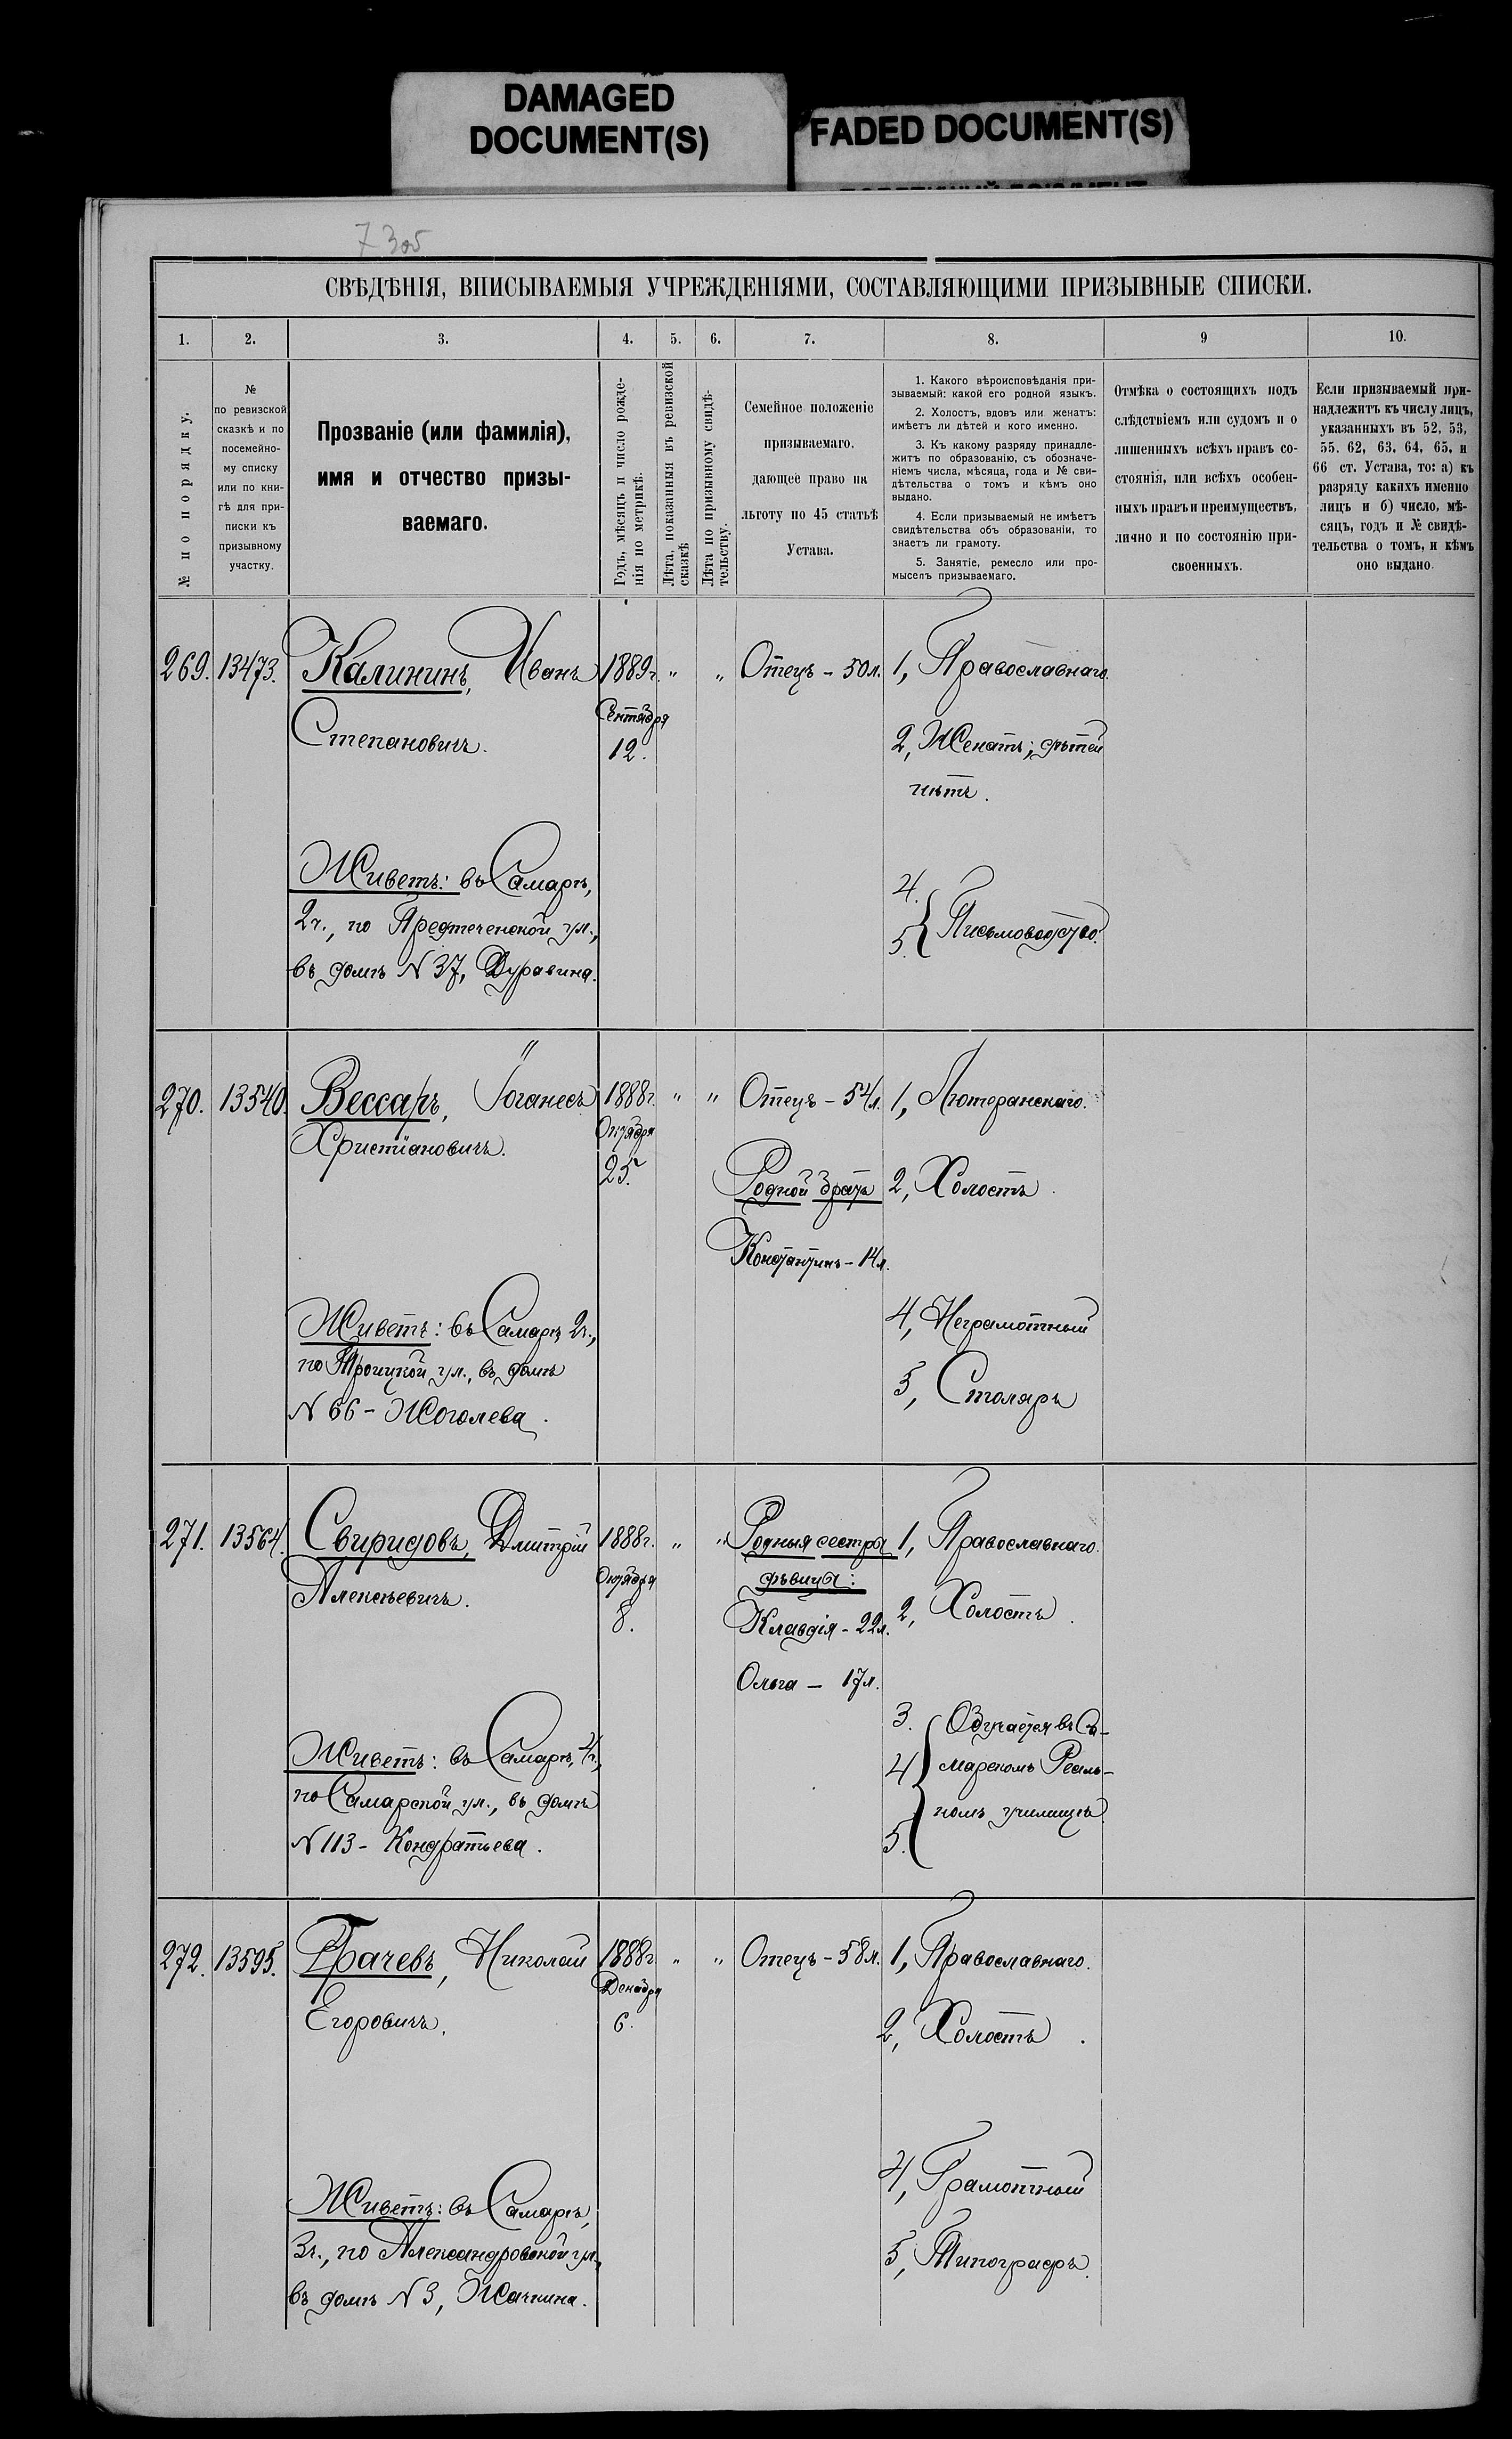 DAMAGED
DOCUMENT(S)
FADED DOCUMENT(S)
73об
СВѢДѢНІЯ, ВПИСЫВАЕМЫЯ УЧРЕЖДЕНІЯМИ, СОСТАВЛЯЮЩИМИ ПРИЗЫВНЫЕ СПИСКИ.
1. 2. 3. 4. 5. 6. 7. 8. 9 10.
№ по порядку.
№
по ревизской
сказкѣ и по
посемейно-
му списку
или по кни-
гѣ для при-
писки къ
призывному
участку.
Прозваніе (или фамилія),
имя и отчество призы-
ваемаго.
Годъ, мѣсяцъ и число рожде-
нія по метрикѣ.
Лѣта, показанныя въ ревизской
сказкѣ
Лѣта по призывному свидѣ-
тельству.
Семейное положеніе
призываемаго,
дающее право на
льготу по 45 статьѣ
Устава.
1. Какого вѣроисповѣданія при-
зываемый: какой его родной языкъ.
2. Холостъ, вдовъ или женатъ:
имѣетъ ли дѣтей и кого именно.
3. Къ какому разряду принадле-
житъ по образованію, съ обозначе-
ніемъ числа, мѣсяца, года и № сви-
дѣтельства о томъ и кѣмъ оно
выдано.
4. Если призываемый не имѣетъ
свидѣтельства объ образованіи, то
знаетъ ли грамоту.
5. Занятіе, ремесло или про-
мыселъ призываемаго.
Отмѣка о состоящихъ подъ
слѣдствіемъ или судомъ и о
лишенныхъ всѣхъ правъ со-
стоянія, или всѣхъ особен-
ныхъ правъ и преимуществъ,
лично и по состоянію при-
своенныхъ.
Если призываемый при-
надлежитъ къ числу лицъ,
указанныхъ въ 52, 53,
55. 62, 63, 64, 65, и
66 ст. Устава, то: а) къ
разряду какихъ именно
лицъ и б) число, мѣ-
сяцъ, годъ и № свидѣ-
тельства о томъ, и кѣмъ
оно выдано.
269. 13473. Калининъ, Иванъ 1889г. " " Отецъ - 50л. 1, Православнаго.
Степановичъ.
Сентября
12.
2, Женатъ; дѣтей
нѣтъ.
Живетъ: въ Самарѣ,
2ч., по Предтеченской ул.,
въ домѣ N 37, Дуравина.
4.
5. Письмоводство.
270. 13540. Вессаръ, Іоганесъ 1888г. " " Отецъ - 54л. 1, Лютеранскаго.
Христіановичъ.
Октября
25.
Родной братъ
Константинъ - 14л.
2, Холостъ.
Живетъ: въ Самарѣ 2ч.,
по Троицкой ул., въ домѣ
N 66 - Жоголева.
4, Неграмотный
5, Столяръ
271. 13564. Свиридовъ, Дмитрій 1888г. " " Родныя сестры 1, Православнаго.
Алексѣевичъ.
Октября
8.
дѣвицы:
Клавдія - 22л.
Ольга - 17л.
2, Холостъ.
Живетъ: въ Самарѣ, 4ч.,
по Самарской ул., въ домѣ
N 113 - Кондратьева.
3. Обучается въ Са-
4 марскомъ Реаль-
номъ училищѣ.
5.
272. 13595. Грачевъ, Николай 1888г. " " Отецъ - 58л. 1, Православнаго.
Егоровичъ.
Декабря
6.
2, Холостъ.
Живетъ: въ Самарѣ,
3ч., по Александровской ул.,
въ домѣ N 3,
4, Грамотный
5, Типографъ.